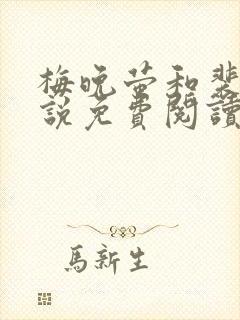 梅晚萤和裴
說免費閱讀
馬新生